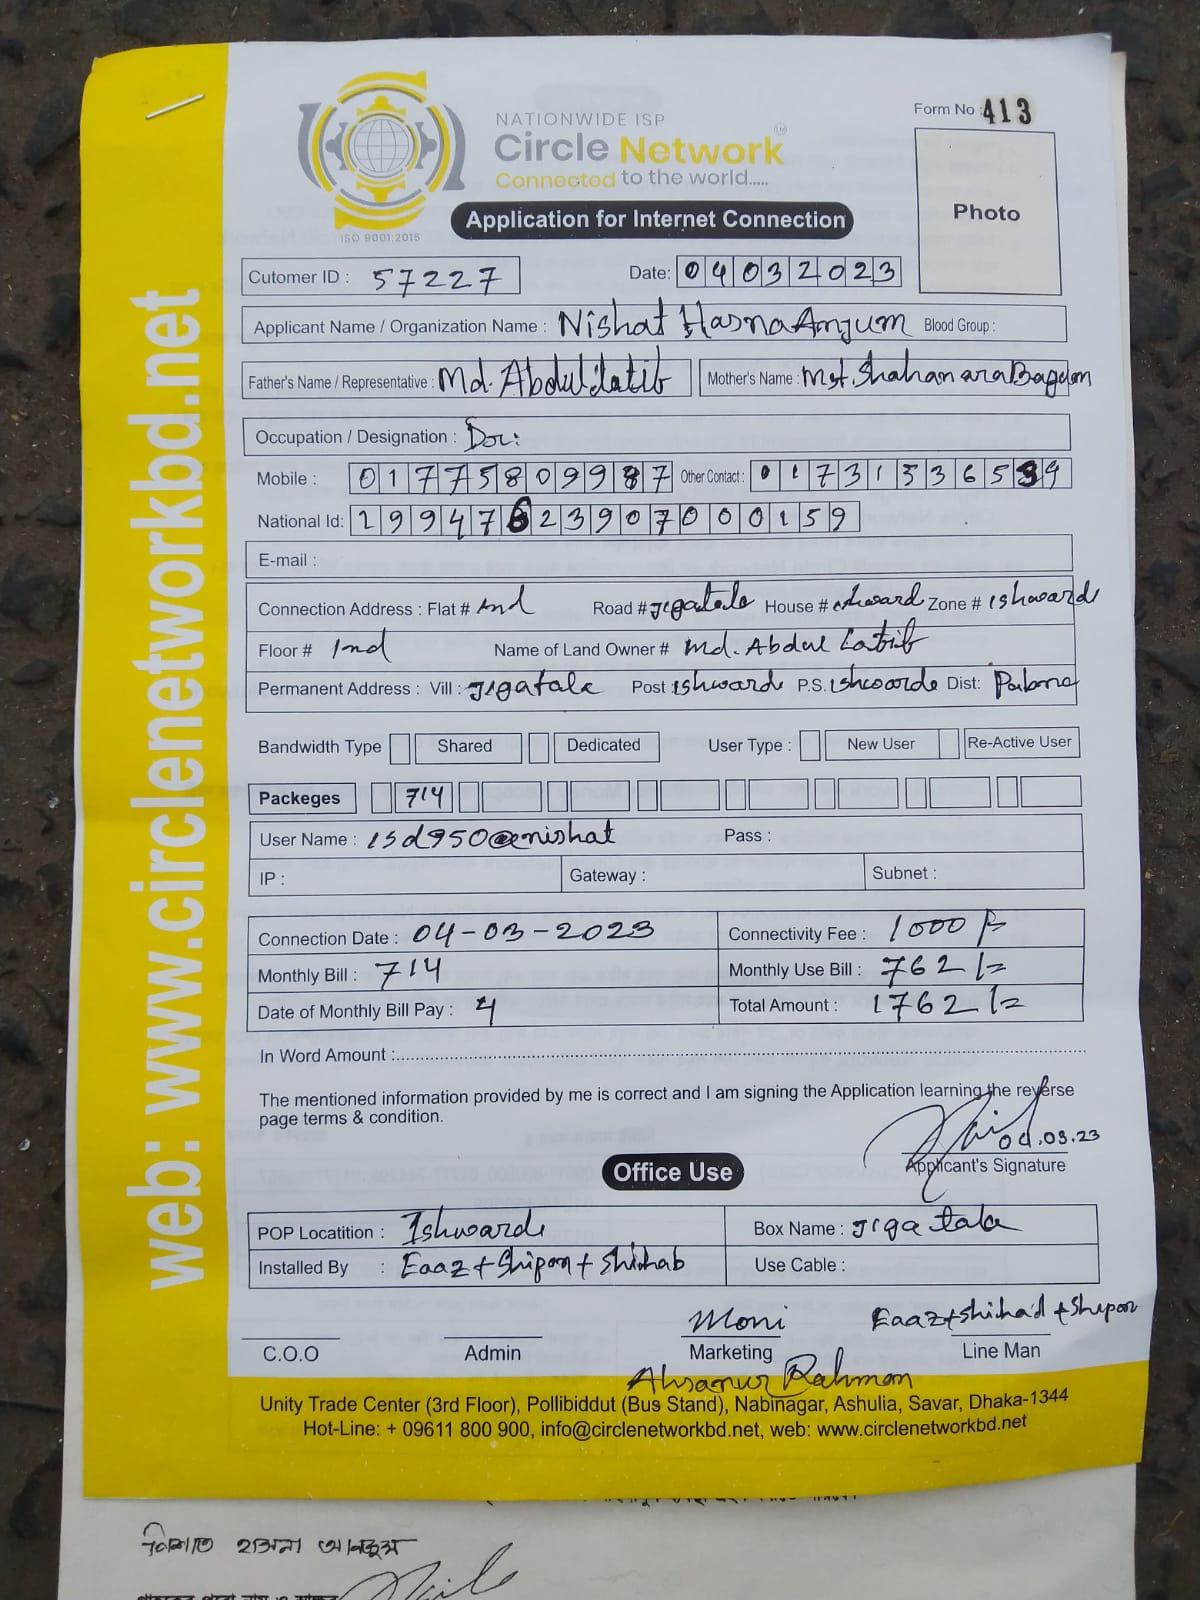 NATIONWIDE ISP
Circle Network
TM
Connected to the world.....
ISO 9001:2015
Form No : 413
Photo
Application for Internet Connection
Cutomer ID : 57227 Date: 04032023
Applicant Name / Organization Name : Nishat Hasna Anjum Blood Group :
Father's Name / Representative : Md. Abdul Latib Mother's Name : Mst. Shahanara Bagum
Occupation / Designation :
Mobile : 01775809987 Other Contact : 01731536539
National Id: 19947623907000159
E-mail :
Connection Address : Flat # Road # Jigatala House # Zone # Ishwardi
Floor # Name of Land Owner # Md. Abdul Latib
Permanent Address : Vill : Jigatala Post : Ishwardi P.S. Ishwardi Dist: Pabna
Bandwidth Type Shared Dedicated User Type : New User Re-Active User
Packeges 714
User Name : isd950@nishat Pass :
IP : Gateway : Subnet :
Connection Date : 04-03-2023 Connectivity Fee : 1000/-
Monthly Bill : 714 Monthly Use Bill : 762/=
Date of Monthly Bill Pay : 4 Total Amount : 1762/=
In Word Amount :
The mentioned information provided by me is correct and I am signing the Application learning the reverse
page terms & condition.
04.03.23
Applicant's Signature
Office Use
POP Locatition : Ishwardi Box Name : Jigatala
Installed By : Eaaz + Shipon + Shihab Use Cable :
Moni Eaaz + Shihad + Shipon
C.O.O Admin Marketing Line Man
Ahsanur Rahman
Unity Trade Center (3rd Floor), Pollibiddut (Bus Stand), Nabinagar, Ashulia, Savar, Dhaka-1344
Hot-Line: + 09611 800 900, info@circlenetworkbd.net, web: www.circlenetworkbd.net
web: www.circlenetworkbd.net
নিশাত হাসনা আনজুম